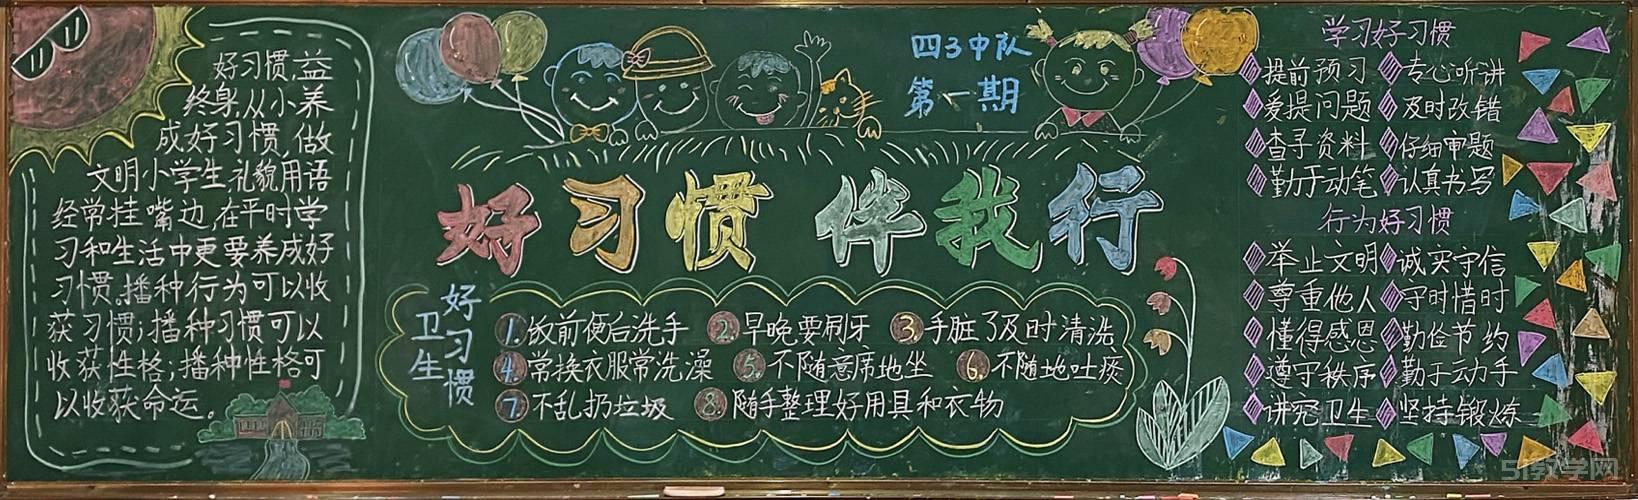 好习惯,益
终身,从小养
成好习惯,做
文明小学生,礼貌用语
经常挂嘴边,在平时学
习和生活中更要养成好
习惯。播种行为可以收
获习惯;播种习惯可以
收获性格;播种性格可
以收获命运。
四3中队
第一期
好习惯 伴我行
卫生
好习惯
1.饭前便后洗手 2.早晚要刷牙 3.手脏了及时清洗
4.常换衣服常洗澡 5.不随意席地坐 6.不随地吐痰
7.不乱扔垃圾 8.随手整理好用具和衣物
学习好习惯
提前预习 专心听讲
爱提问题 及时改错
查寻资料 仔细审题
勤于动笔 认真书写
行为好习惯
举止文明 诚实守信
尊重他人 守时惜时
懂得感恩 勤俭节约
遵守秩序 勤于动手
讲究卫生 坚持锻炼
51教学网